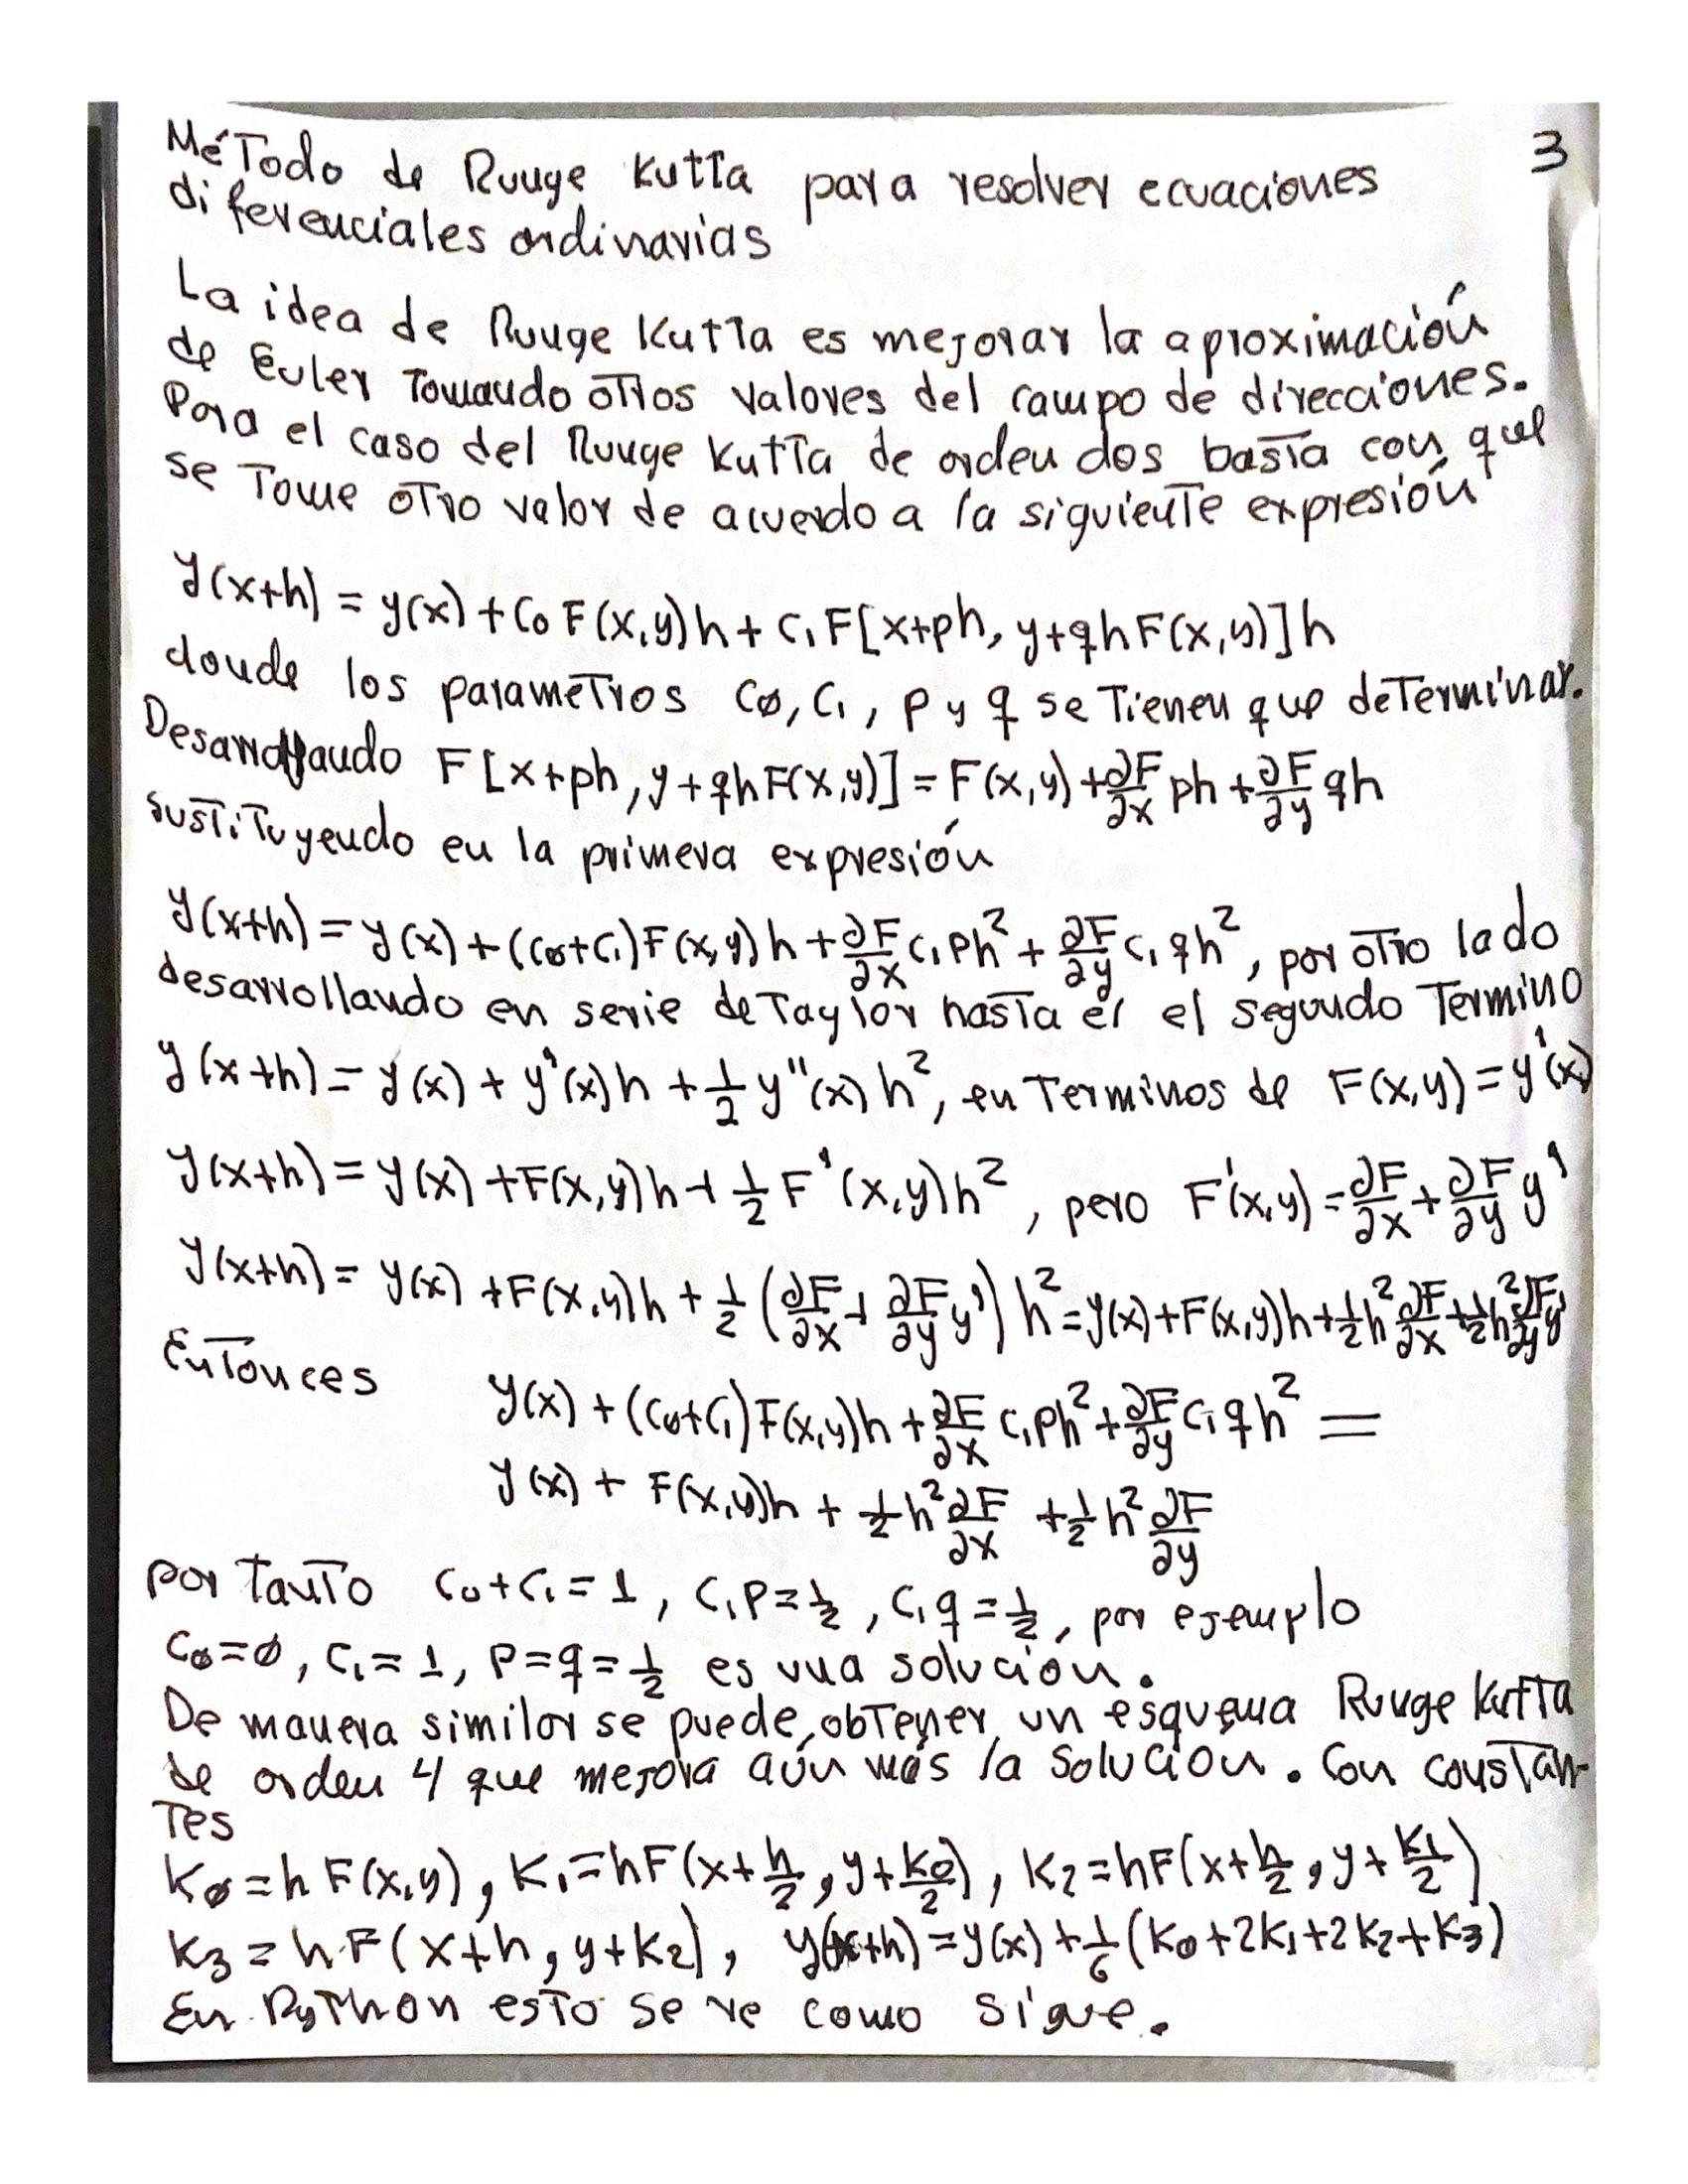 3
Método de Runge Kutta para resolver ecuaciones
diferenciales ordinarias
La idea de Runge Kutta es mejorar la aproximación
de Euler Tomando otros valores del campo de direcciones.
Para el caso del Runge Kutta de orden dos basta con que
se Tome otro valor de acuerdo a la siguiente expresión
y(x+h) = y(x) + C₀ F(x,y)h + C₁F[x+ph, y+qhF(x,y)]h
donde los parametros C∅, C₁, p y q se Tienen que deTerminar.
Desarrollando F[x+ph, y+qhF(x,y)] = F(x,y) + ∂F/∂x ph + ∂F/∂y qh
sustituyendo en la primera expresión
y(x+h) = y(x) + (C₀+C₁)F(x,y)h + ∂F/∂x C₁ph² + ∂F/∂y C₁qh², por otro lado
desarrollando en serie de Taylor hasta el el segundo Termino
y(x+h) = y(x) + y'(x)h + 1/2 y''(x)h², en Terminos de F(x,y) = y'(x)
y(x+h) = y(x) + F(x,y)h + 1/2 F'(x,y)h², pero F'(x,y) = ∂F/∂x + ∂F/∂y y'
y(x+h) = y(x) + F(x,y)h + 1/2 (∂F/∂x + ∂F/∂y y') h² = y(x) + F(x,y)h + 1/2 h² ∂F/∂x + 1/2 h² ∂F/∂y y'
Entonces y(x) + (C₀+C₁)F(x,y)h + ∂F/∂x C₁ph² + ∂F/∂y C₁qh² =
y(x) + F(x,y)h + 1/2 h² ∂F/∂x + 1/2 h² ∂F/∂y
por Tanto C₀+C₁ = 1, C₁p = 1/2, C₁q = 1/2, por ejemplo
C∅ = ∅, C₁ = 1, p = q = 1/2 es una solución.
De manera similar se puede obTener un esquema Runge Kutta
de orden 4 que mejora aún más la solución. Con constan-
Tes
K∅ = h F(x,y), K₁ = hF(x+h/2, y+K0/2), K₂ = hF(x+h/2, y+K1/2)
K₃ = h F(x+h, y+K₂), y(x+h) = y(x) + 1/6 (K₀+2K₁+2K₂+K₃)
En Python esto se ve como sigue.